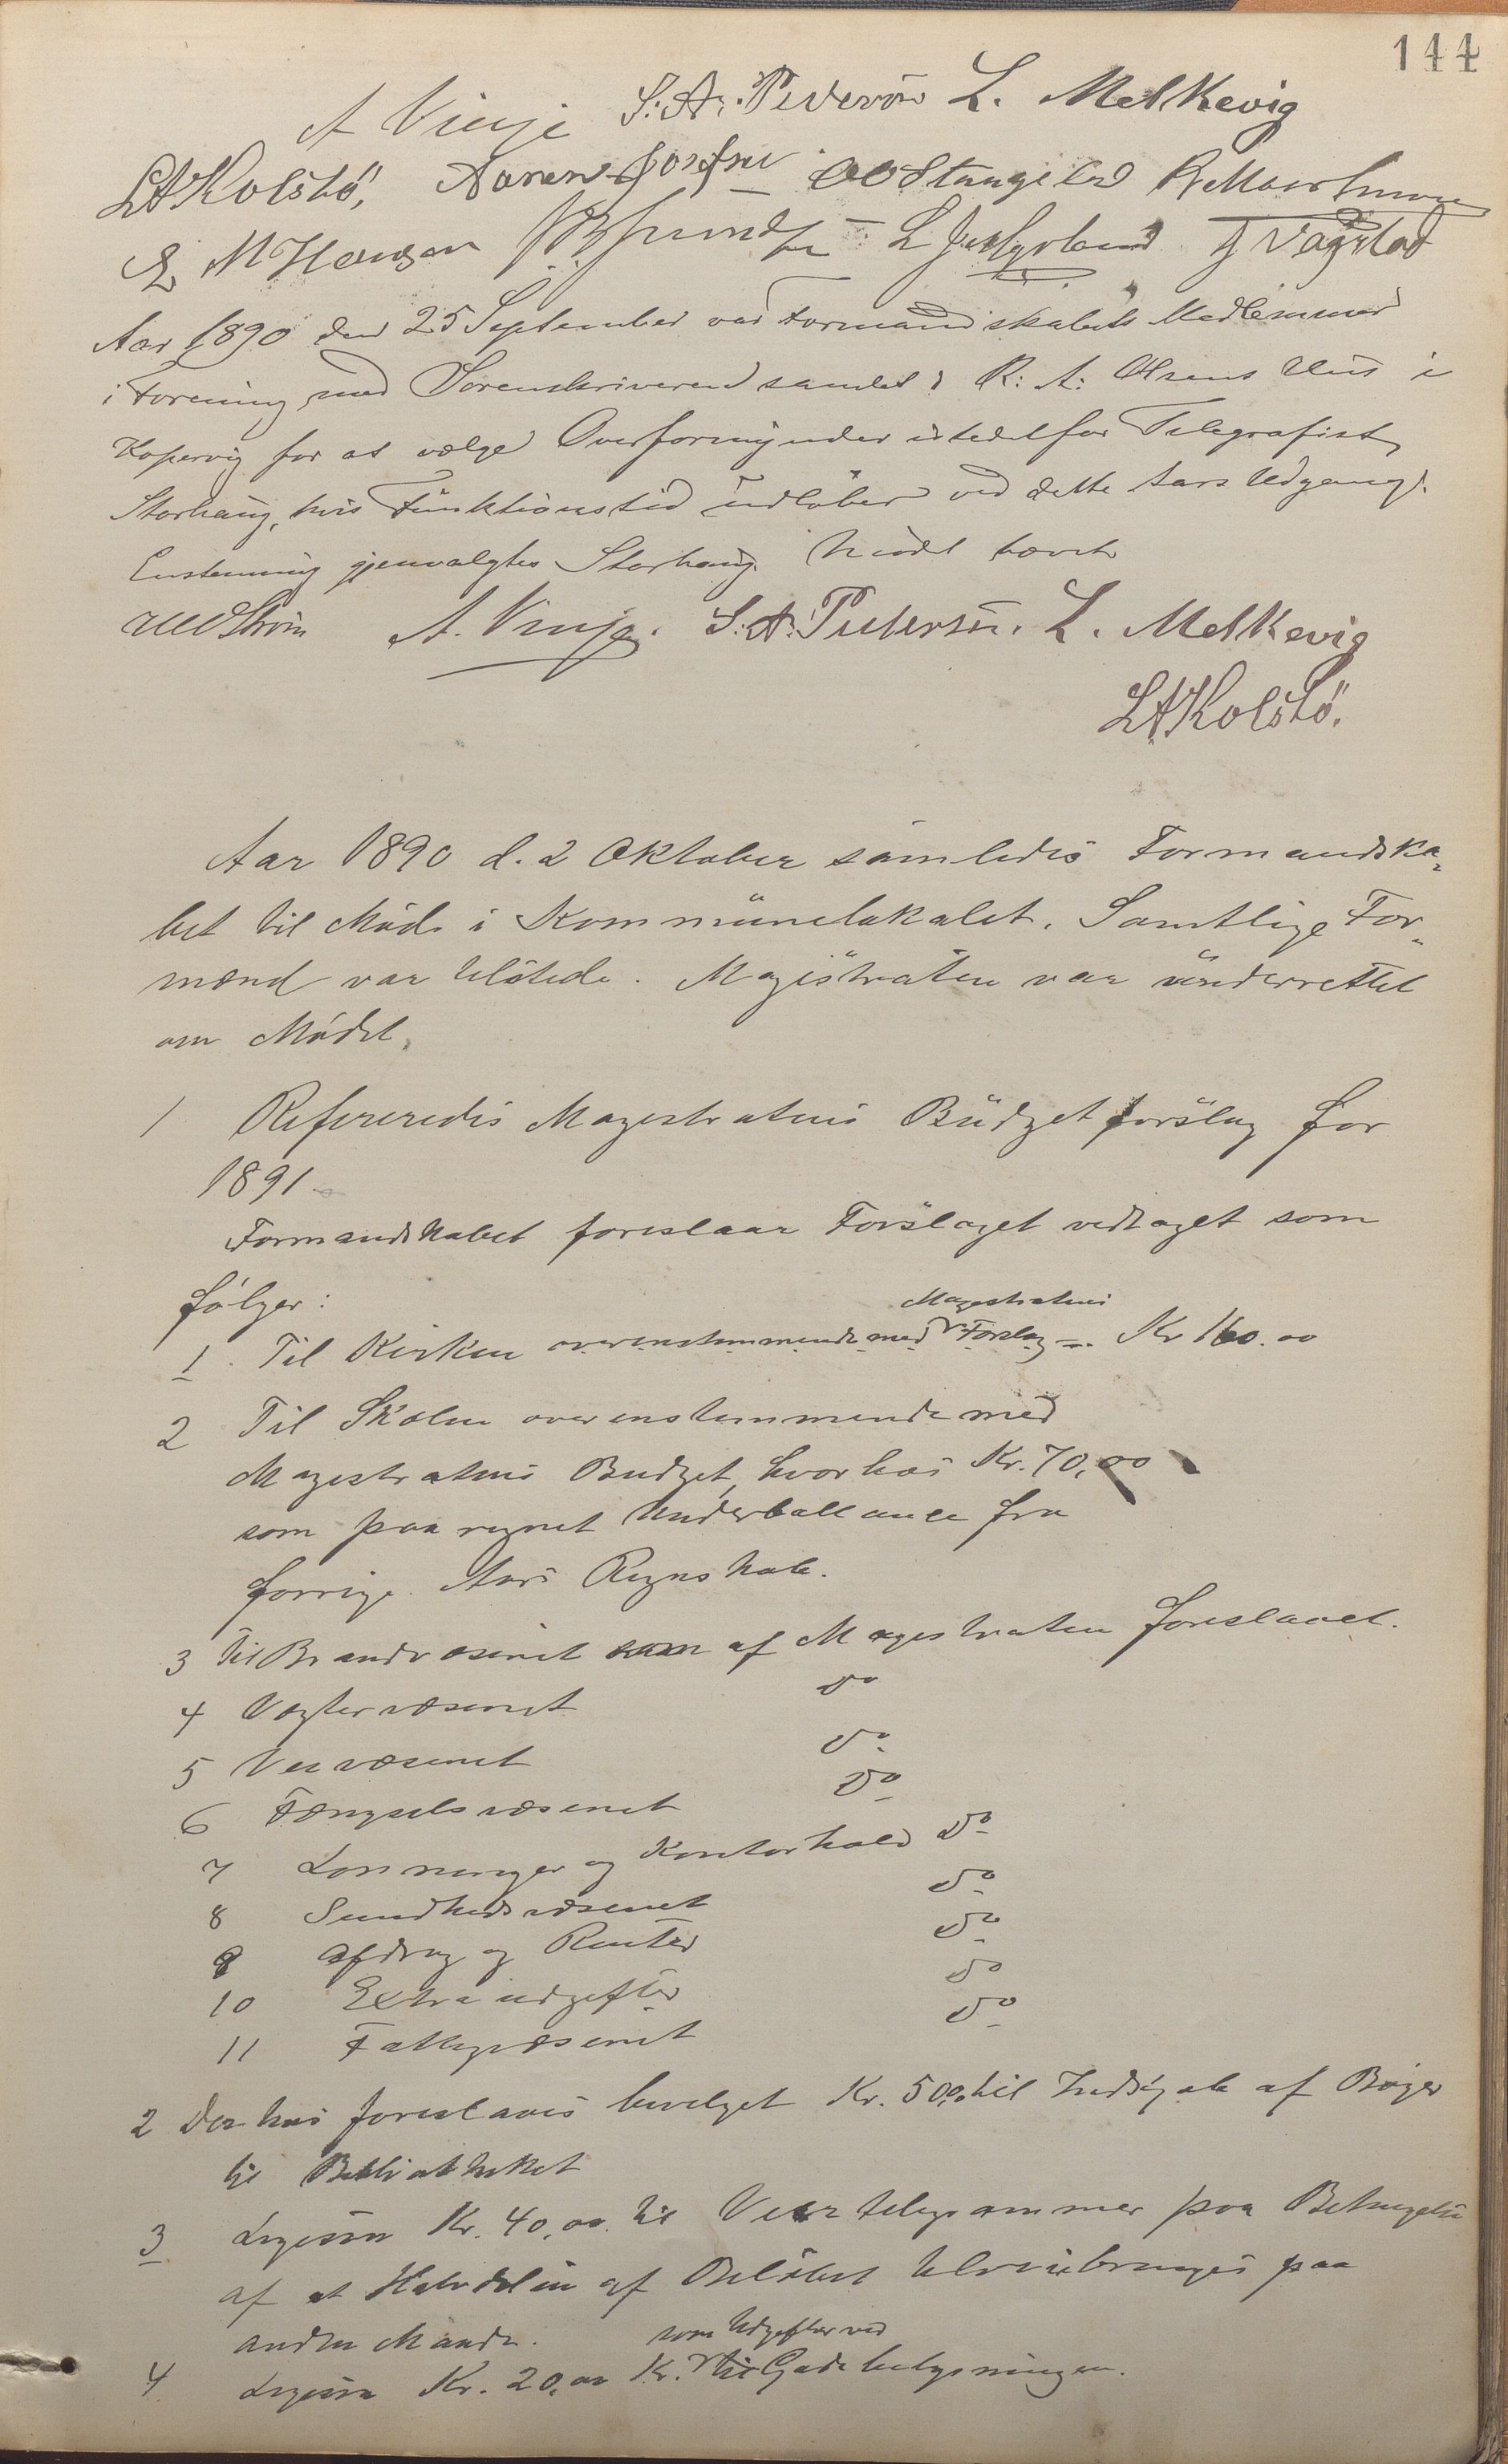 144
A Vinje S. A. Pedersen L. Melkevig
LAKolstö, Aanen Josefsen OO Stangeland
E. M Hansen L J Vagstad
Aar 1890 den 25 September var Formandskabets Medlemmer
i Forening med Sorenskriveren samlet i R: A: Olsens Hus i
Kopervig for at vælge Overformynder istedetfor Telegrafist
Storhaug, hvis Funktionstid udløber ved dette Aars Udgang.
Enstemmig gjenvalgtes Storhaug. Mødet hævet
A. Vinje. S. A. Pedersen. L. Melkevig
LAKolstö.
Aar 1890 d. 2 Oktober samledes Formandska-
bet til Møde i Kommunelokalet. Samtlige For-
mænd var tilstede. Magistraten var underrettet
om Mødet.
1 Refereredes Magestratens Budgetforslag for
1891
Formandskabet foreslaar Forslaget vedtaget som
følger:
1. Til Kirken overenstemmende med Magestratens Forslag - Kr 160.00
2 Til Skolen overenstemmende med
Magestratens Budget, hvorhos Kr. 70,00
som paaregnet Underballance fra
forrige Aars Regnskab.
3 til Brandvæsenet som af Magestraten foreslaaet.
4 Vægtervæsenet do
5 Veivæsenet do
6 Fængselsvæsenet do
7 Lønninger og Kontorhold do
8 Sundhedsvæsenet do
9 Afdrag og Renter do
10 Extraudgifter do
11 Fattigvæsenet do
2 Derhos foreslaaes bevilget Kr. 50,00 til Indkjøb af Bøger
til Bibliotheket
3 Ligesaa Kr. 40,00 til Veirtelegrammer paa Betingelse
af at Halvdelen af Beløbet tilveiebringes paa
anden Maade.
4 Ligesaa Kr. 20,00 Kr. som Udgifter ved til Gadebelysningen.